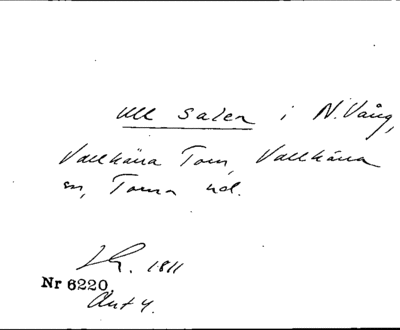 Ull salen i N. Vång,
Vallkärra Torn, Vallkärra
sn, Torna hd.
Lk. 1811
Nr 6220,
Akt 4.